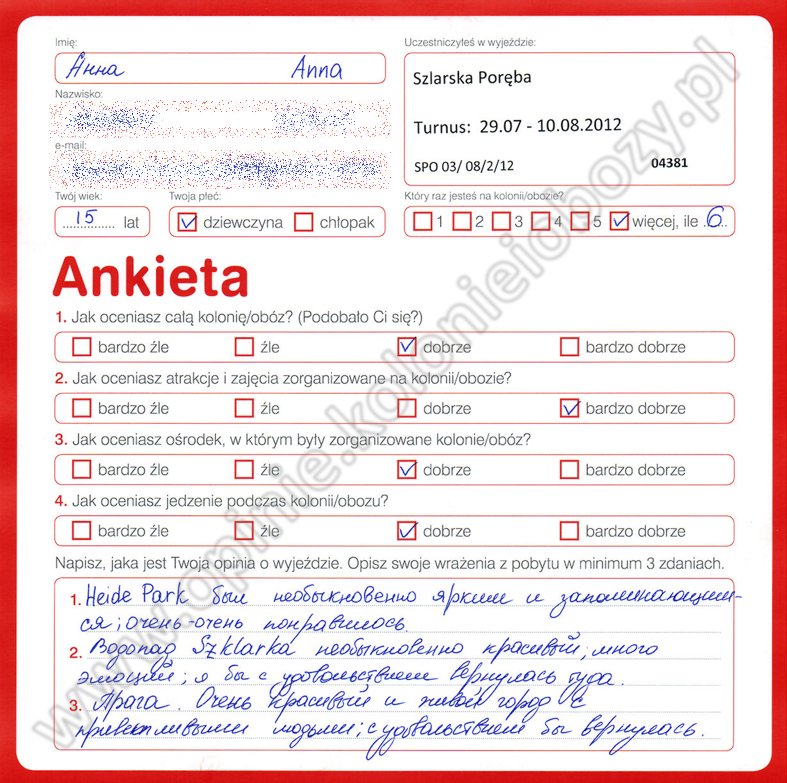 Imię:
Анна Anna
Uczestniczyłeś w wyjeździe:
Szlarska Poręba
Turnus: 29.07 - 10.08.2012
SPO 03/ 08/2/12 04381
Nazwisko:
e-mail:
Twój wiek:
15 lat
Twoja płeć:
dziewczyna chłopak
Który raz jesteś na kolonii/obozie?
1 2 3 4 5 więcej, ile 6
Ankieta
1. Jak oceniasz całą kolonię/obóz? (Podobało Ci się?)
bardzo źle źle dobrze bardzo dobrze
2. Jak oceniasz atrakcje i zajęcia zorganizowane na kolonii/obozie?
bardzo źle źle dobrze bardzo dobrze
3. Jak oceniasz ośrodek, w którym były zorganizowane kolonie/obóz?
bardzo źle źle dobrze bardzo dobrze
4. Jak oceniasz jedzenie podczas kolonii/obozu?
bardzo źle źle dobrze bardzo dobrze
Napisz, jaka jest Twoja opinia o wyjeździe. Opisz swoje wrażenia z pobytu w minimum 3 zdaniach.
1. Heide Park был необыкновенно ярким и запоминающим-
ся; очень-очень понравилось.
2. Водопад Szklarka необыкновенно красивый, много
эмоций; я бы с удовольствием вернулась туда.
3. Прага. Очень красивый и живой город с
приветливыми людьми; с удовольствием бы вернулась.
www.opinie.kolonieiobozy.pl